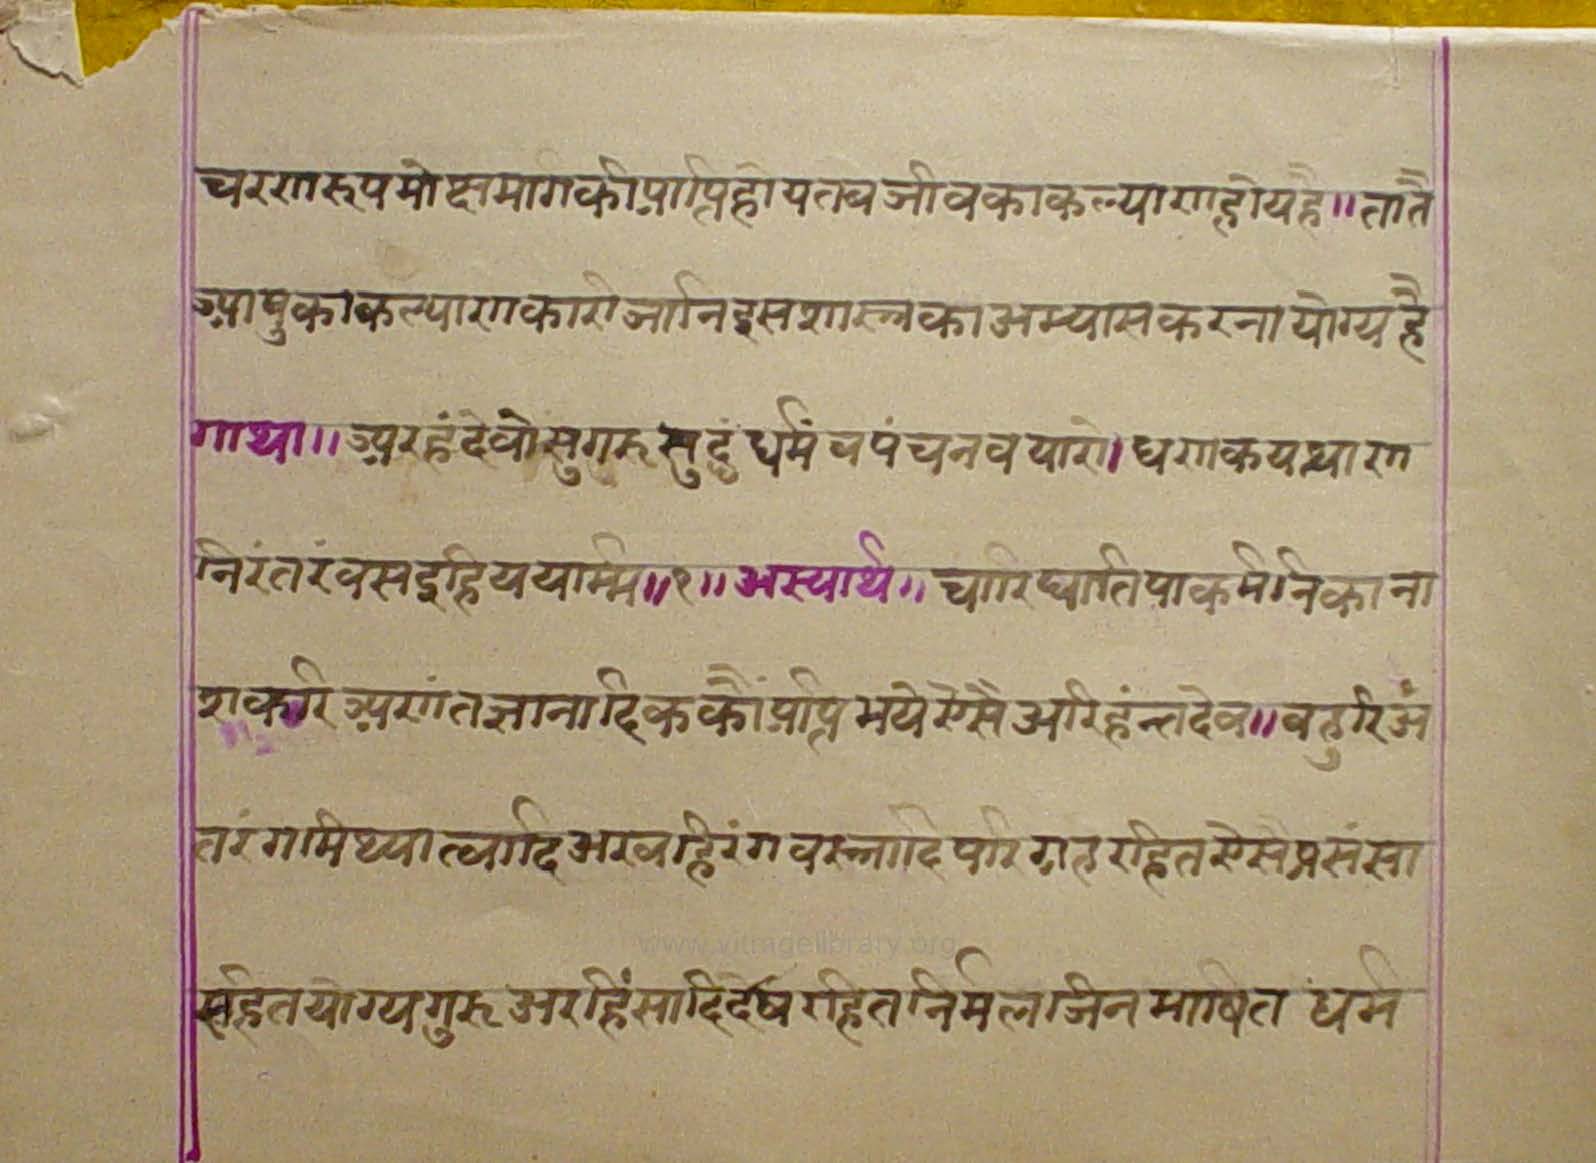 चरणरूपमोक्षमार्गकीप्राप्तिहोयतवजीवकाकल्याणहोयहै॥तातै
आपुकाकल्याणकारीजानिइसशास्त्रकाअभ्यासकरनायोग्यहै
गाथा॥अरहंदेवोसुगरूसुद्दंधर्मंचपंचनवयारो।धणकयत्थाण
निरंतरंवसइहिययाम्मि॥१॥अस्यार्थ॥चारिघातियाकर्मनिकाना
शकरिअणंतज्ञानादिककौंप्राप्तभयेऐसैअरिहंन्तदेव॥वहुरिअं
तरंगमिथ्यात्वादिअरवहिरंगवस्त्रादिपरिग्रहरहितऐसैप्रसंसा
सहितयोग्यगुरूअरहिंसादिदोषरहितनिर्मलजिनभाषितधर्म
www.vitragelibrary.org